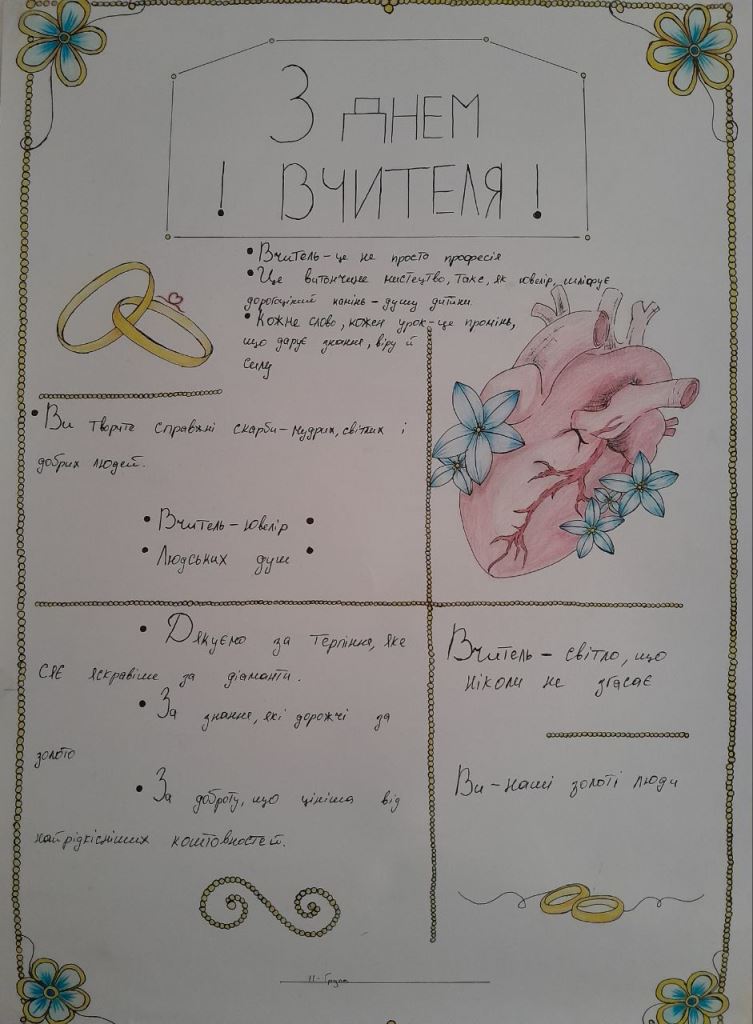 З ДНЕМ
! ВЧИТЕЛЯ !
• Вчитель - це не просто професія
• Це витончене мистецтво, таке, як ювелір, шліфує
дорогоцінний камінь - душу дитини.
• Кожне слово, кожен урок - це промінь,
що дарує знання, віру й
силу
• Ви творите справжні скарби - мудрих, світлих і
добрих людей.
• Вчитель - ювелір •
• Людських душ •
• Дякуємо за терпіння, яке
сяє яскравіше за діаманти.
• За знання, які дорожчі за
золото
• За доброту, що цініша від
найрідкісніших коштовностей.
Вчитель - світло, що
ніколи не згасає
Ви - наші золоті люди
11 - Група